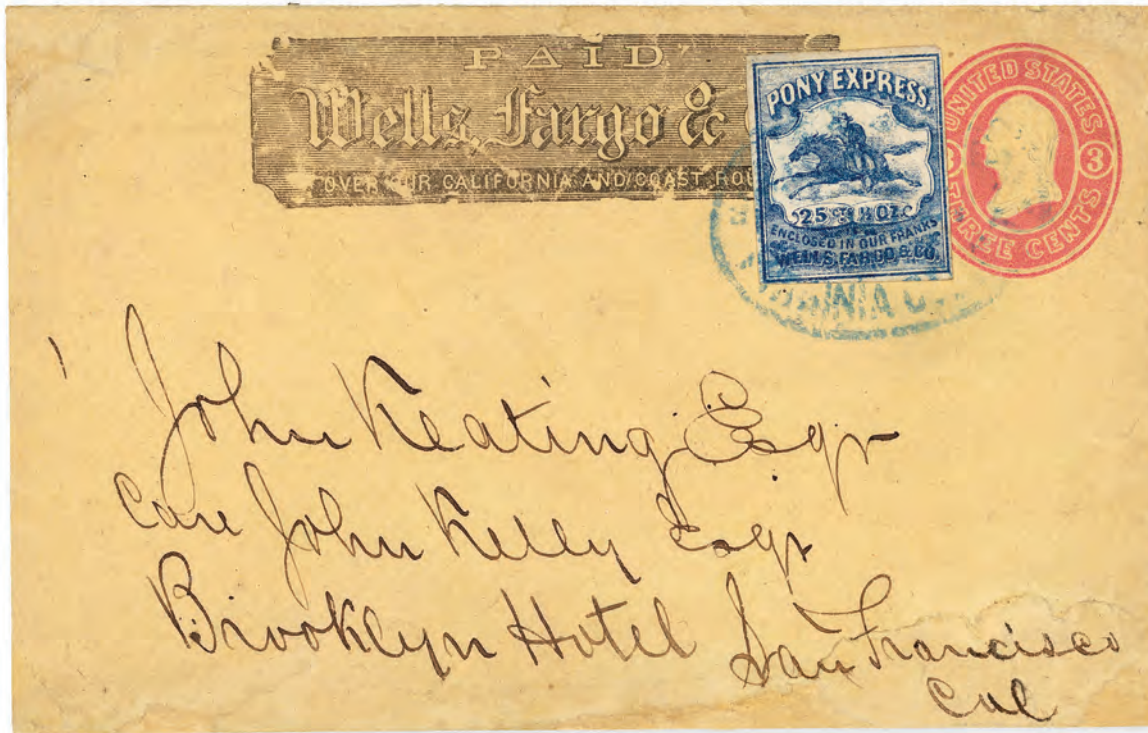 PAID
Wells, Fargo &
OVER OUR CALIFORNIA AND COAST
PONY EXPRESS
25 cts ½ OZ.
ENCLOSED IN OUR FRANKS
WELLS, FARGO & CO.
UNITED STATES
3
THREE CENTS
John Keating Esqr
Care John Kelly Esqr
Brooklyn Hotel San Francisco
Cal